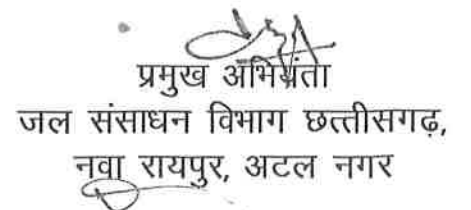 प्रमुख अभियंता
जल संसाधन विभाग छत्तीसगढ़,
नवा रायपुर, अटल नगर